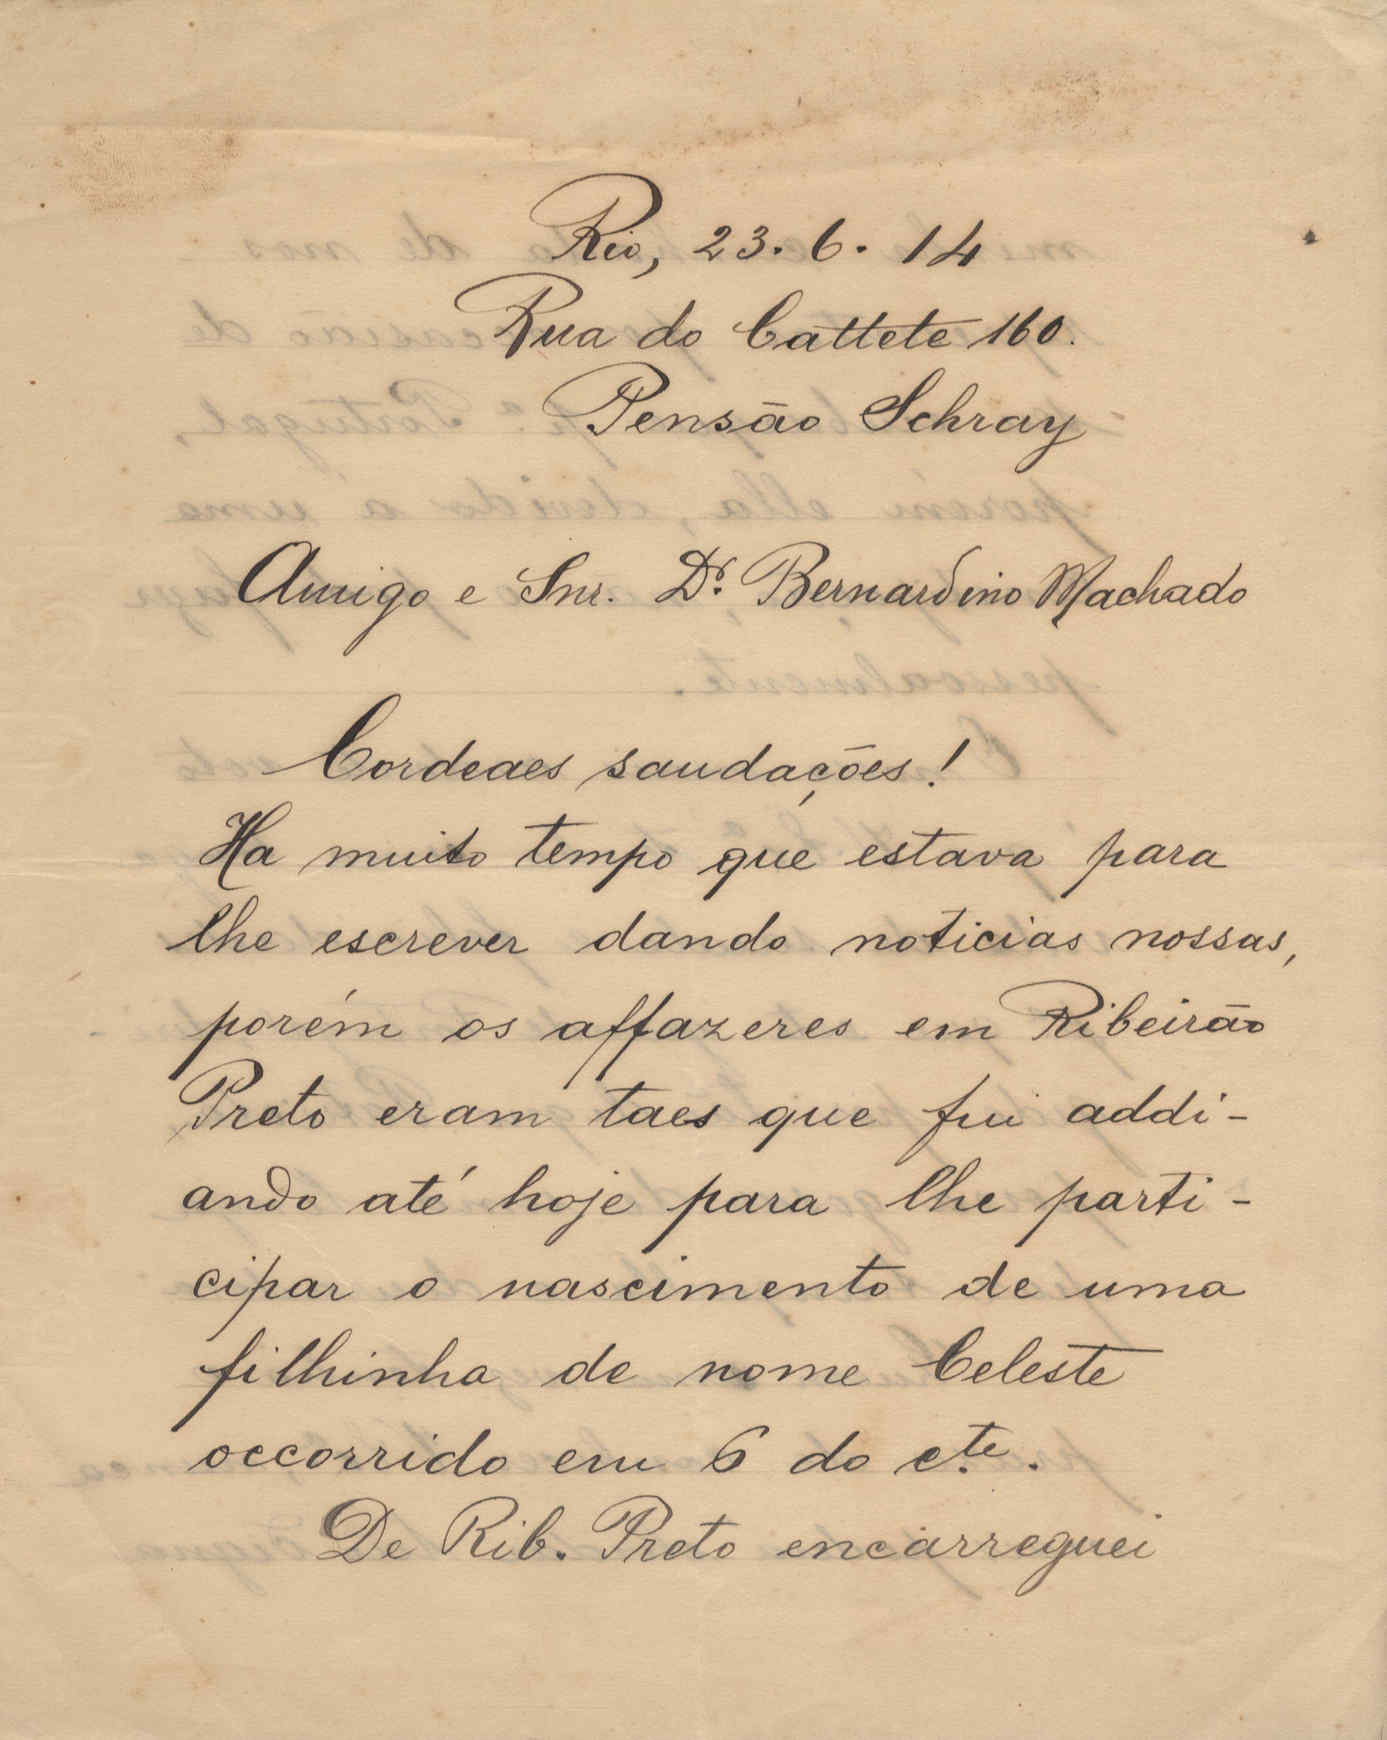 Rio, 23. 6. 14
Rua do Cattete 160.
Pensão Schray
Amigo e Snr. Dr. Bernardino Machado
Cordeaes saudações!
Ha muito tempo que estava para
lhe escrever dando noticias nossas,
porém os affazeres em Ribeirão
Preto eram taes que fui addi-
ando até hoje para lhe parti-
cipar o nascimento de uma
filhinha de nome Celeste
occorrido em 6 do cte.
De Rib. Preto encarreguei